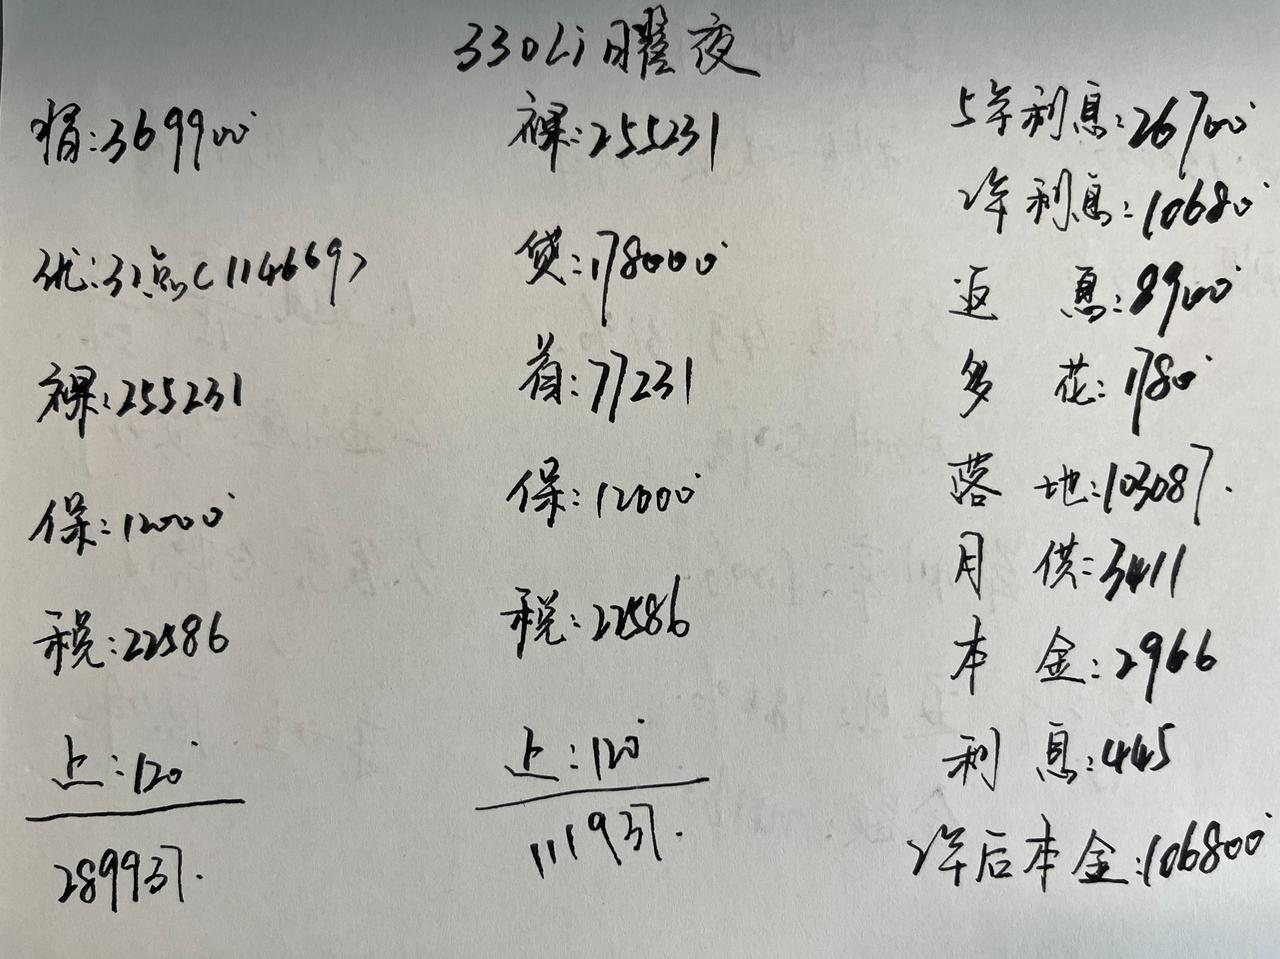 330Li曜夜
指:369900
优:31点(114669)
裸:255231
保:12000
税:22586
上:120
289937.
裸:255231
贷:178000
首:77231
保:12000
税:22586
上:120
111937.
5年利息:26700
2年利息:10680
返息:8900
多花:1780
落地:103087.
月供:3411
本金:2966
利息:445
2年后本金:106800